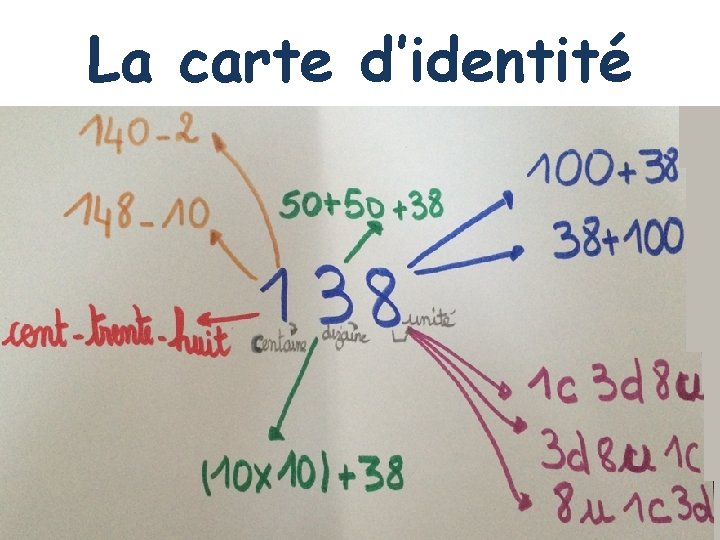 La carte d'identité
140-2
148-10
50+50+38
100+38
38+100
138
centaine dizaine unité
cent-trente-huit
(10x10)+38
1c 3d 8u
3d 8u 1c
8u 1c 3d